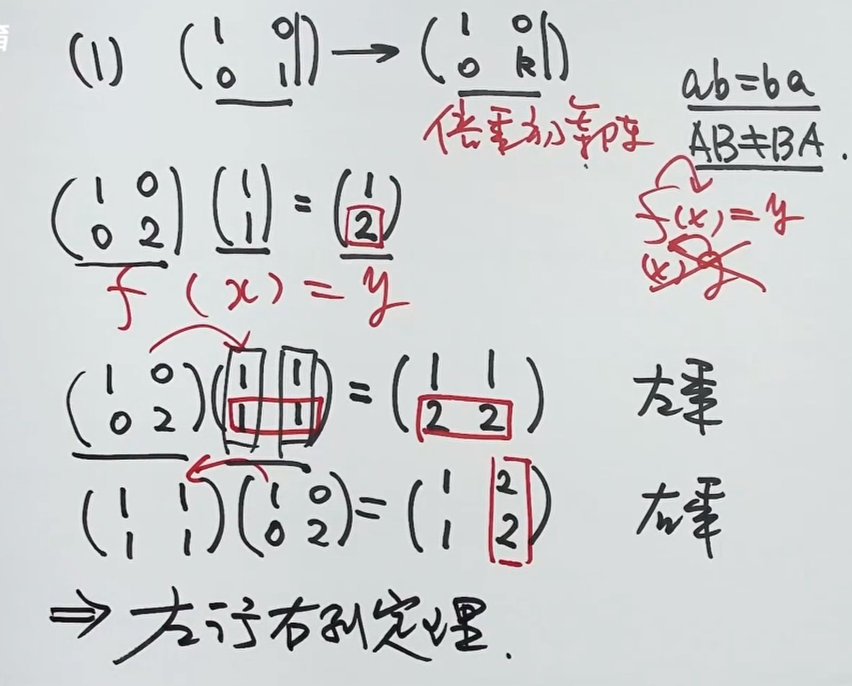 (1) (1 0 0 1) → (1 0 0 k)
倍乘初等阵
ab=ba
AB≠BA.
(1 0 0 2) (1 1) = (1 2)
f (x) = y
f(x)=y
(x)f
(1 0 0 2)(1 1 1 1) = (1 1 2 2) 左乘
(1 1 1 1)(1 0 0 2) = (1 2 1 2) 右乘
⇒ 左行右列定理.